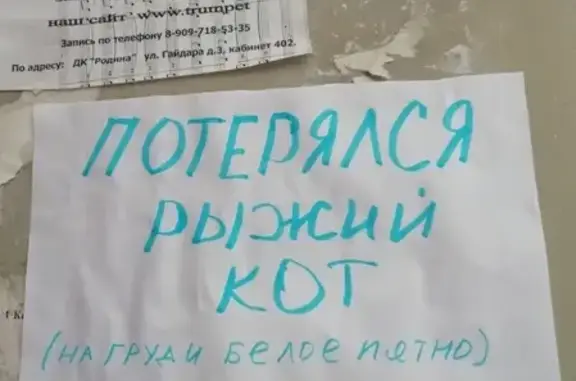 наш сайт www.trumpet
Запись по телефону 8-909-718-53-35
По адресу: ДК "Родина" ул. Гайдара д.3, кабинет 402.
ПОТЕРЯЛСЯ
РЫЖИЙ
КОТ
(НА ГРУДИ БЕЛОЕ ПЯТНО)